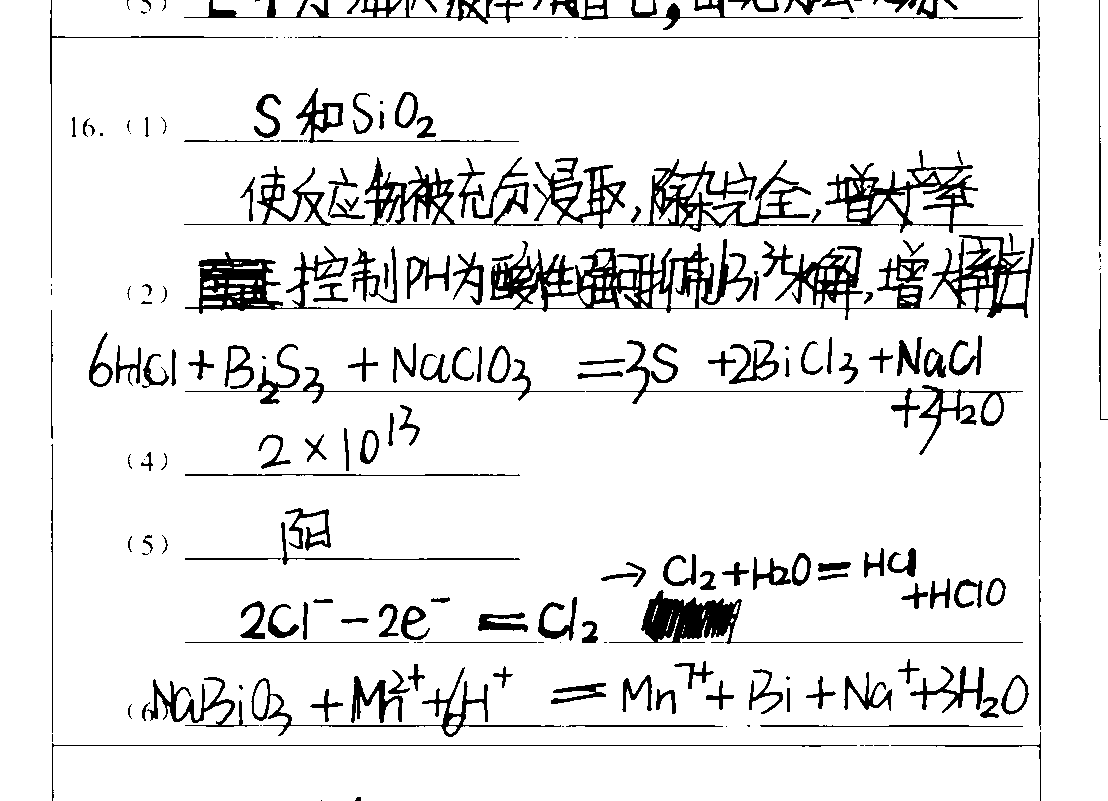 16.（1） S 和 SiO₂
使反应物被充分浸取,除杂完全,增大产率
（2） 控制PH为酸性 抑制Bi³⁺水解,增大
6HCl + Bi₂S₃ + NaClO₃ = 3S + 2BiCl₃ + NaCl
+3H₂O
（4） 2 × 10¹³
（5） 阳
→ Cl₂ + H₂O = HCl
+HClO
2Cl⁻ − 2e⁻ = Cl₂
（6） NaBiO₃ + Mn²⁺ + 6H⁺ = Mn⁷⁺ + Bi + Na⁺ + 3H₂O